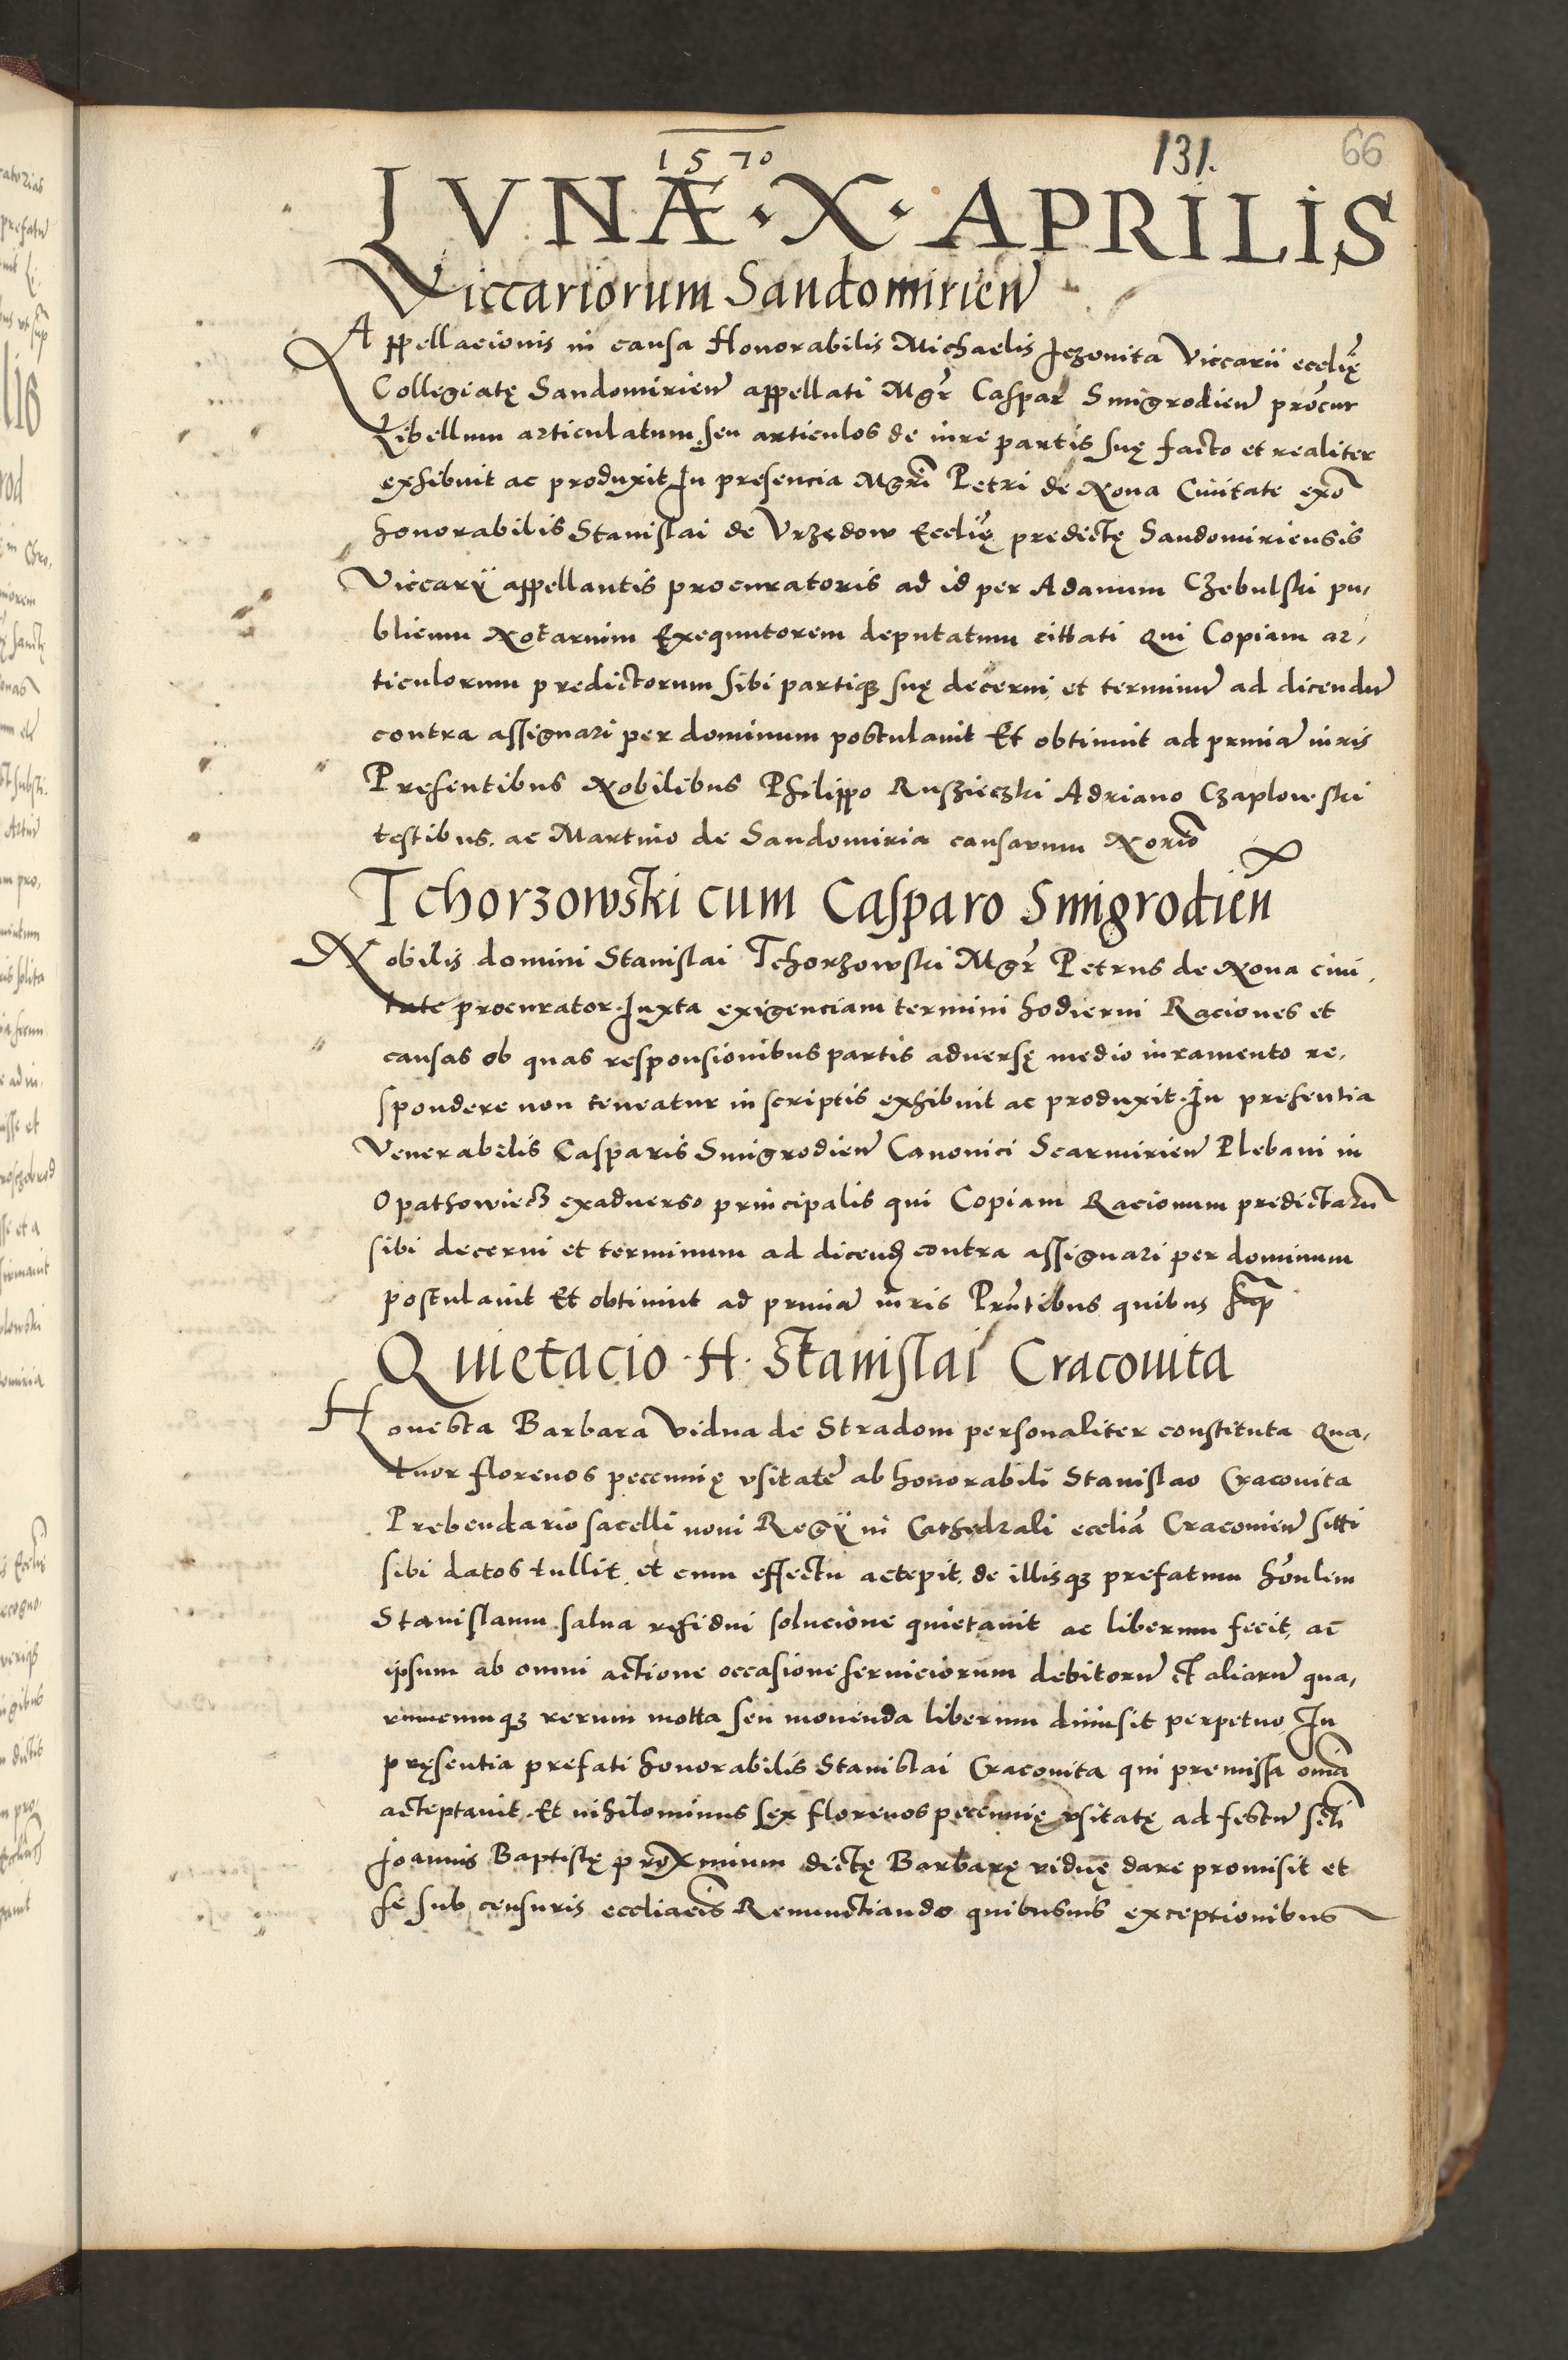 1570
131.
66
LVNÆ · X · APRILIS
Viccariorum Sandomirien
Appellacionis in causa Honorabilis Michaelis Jezovita Viccarii ecclię
Collegiatę Sandomirien appellati Mgr Caspar Smigrodien procur
Libellum articulatum seu articulos de iure partis suę facto et realiter
exhibuit ac produxit In presencia Mgri Petri de Nova Civitate exo
honorabilis Stanislai de Vrzędow Ecclię predictę Sandomiriensis
Viccarÿ appellantis procuratoris ad id per Adamum Czebulski pu,
blicum Notarium Exequutorem deputatum cittati Qui Copiam ar,
ticulorum predictorum sibi partiqꝫ suę decerni et terminu ad dicendu
contra assignari per dominum postulavit Et obtinuit ad prmia iuris
Presentibus Nobilibus Philippo Rusziczki Adriano Czaplowski
testibus. ac Martino de Sandomiria causarum Norio
Tchorzowski cum Casparo Smigrodien
Nobilis domini Stanislai Tchorzowski Mgr Petrus de Nova civi,
tate procurator Iuxta exigenciam termini hodierni Raciones et
causas ob quas responsionibus partis adversę medio iuramento re,
spondere non teneatur in scriptis exhibuit ac produxit. In presentia
Venerabilis Casparis Smigrodien Canonici Scarmirien Plebani in
Opathowiecz exadverso principalis qui Copiam Racionum predictaru
sibi decerni et terminum ad dicend contra assignari per dominum
postulavit Et obtinuit ad prmia iuris Prntibus quibus sup
Quietacio · H · Stanislai Cracovita
Honesta Barbara Vidua de Stradom personaliter constituta Qua,
tuor florenos pecunnię vsitate ab honorabili Stanislao Cracovita
Prebendario sacelli novi Regÿ in Cathedrali ecclia Cracovien sitti
sibi datos tullit et cum effectu actepit. de illisqꝫ prefatum honlem
Stanislaum salva residui solucione quietavit ac liberum fecit, ac
ipsum ab omni actione occasione serviciorum debitoru et aliaru qua,
rumcumqꝫ rerum motta seu movenda liberum dimisit perpetuo In
pręsentia prefati honorabilis Stanislai Cracovita qui premissa omia
acteptavit. Et nihilominus sex florenos pecunnię vsitatę ad festu scti
Joannis Baptistę proxmium dictę Barbarę viduę dare promisit et
se sub censuris eccliacis Renunctiando quibusvis exceptionibus